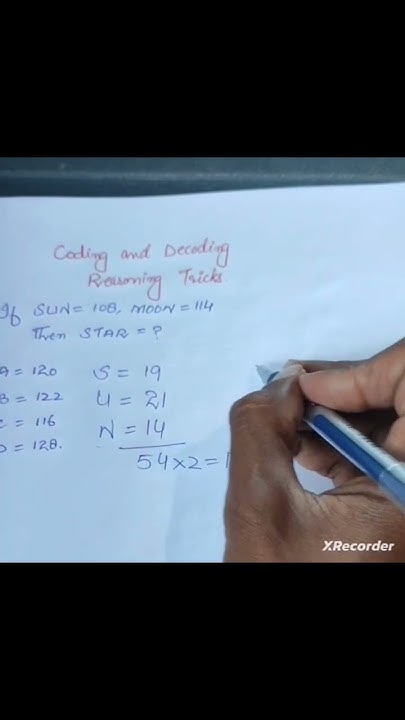 Coding and Decoding
Reasoning Tricks.
If SUN = 108, MOON = 114
Then STAR = ?
A = 120
B = 122
C = 116
D = 128.
S = 19
U = 21
N = 14
54 × 2 = 1
XRecorder